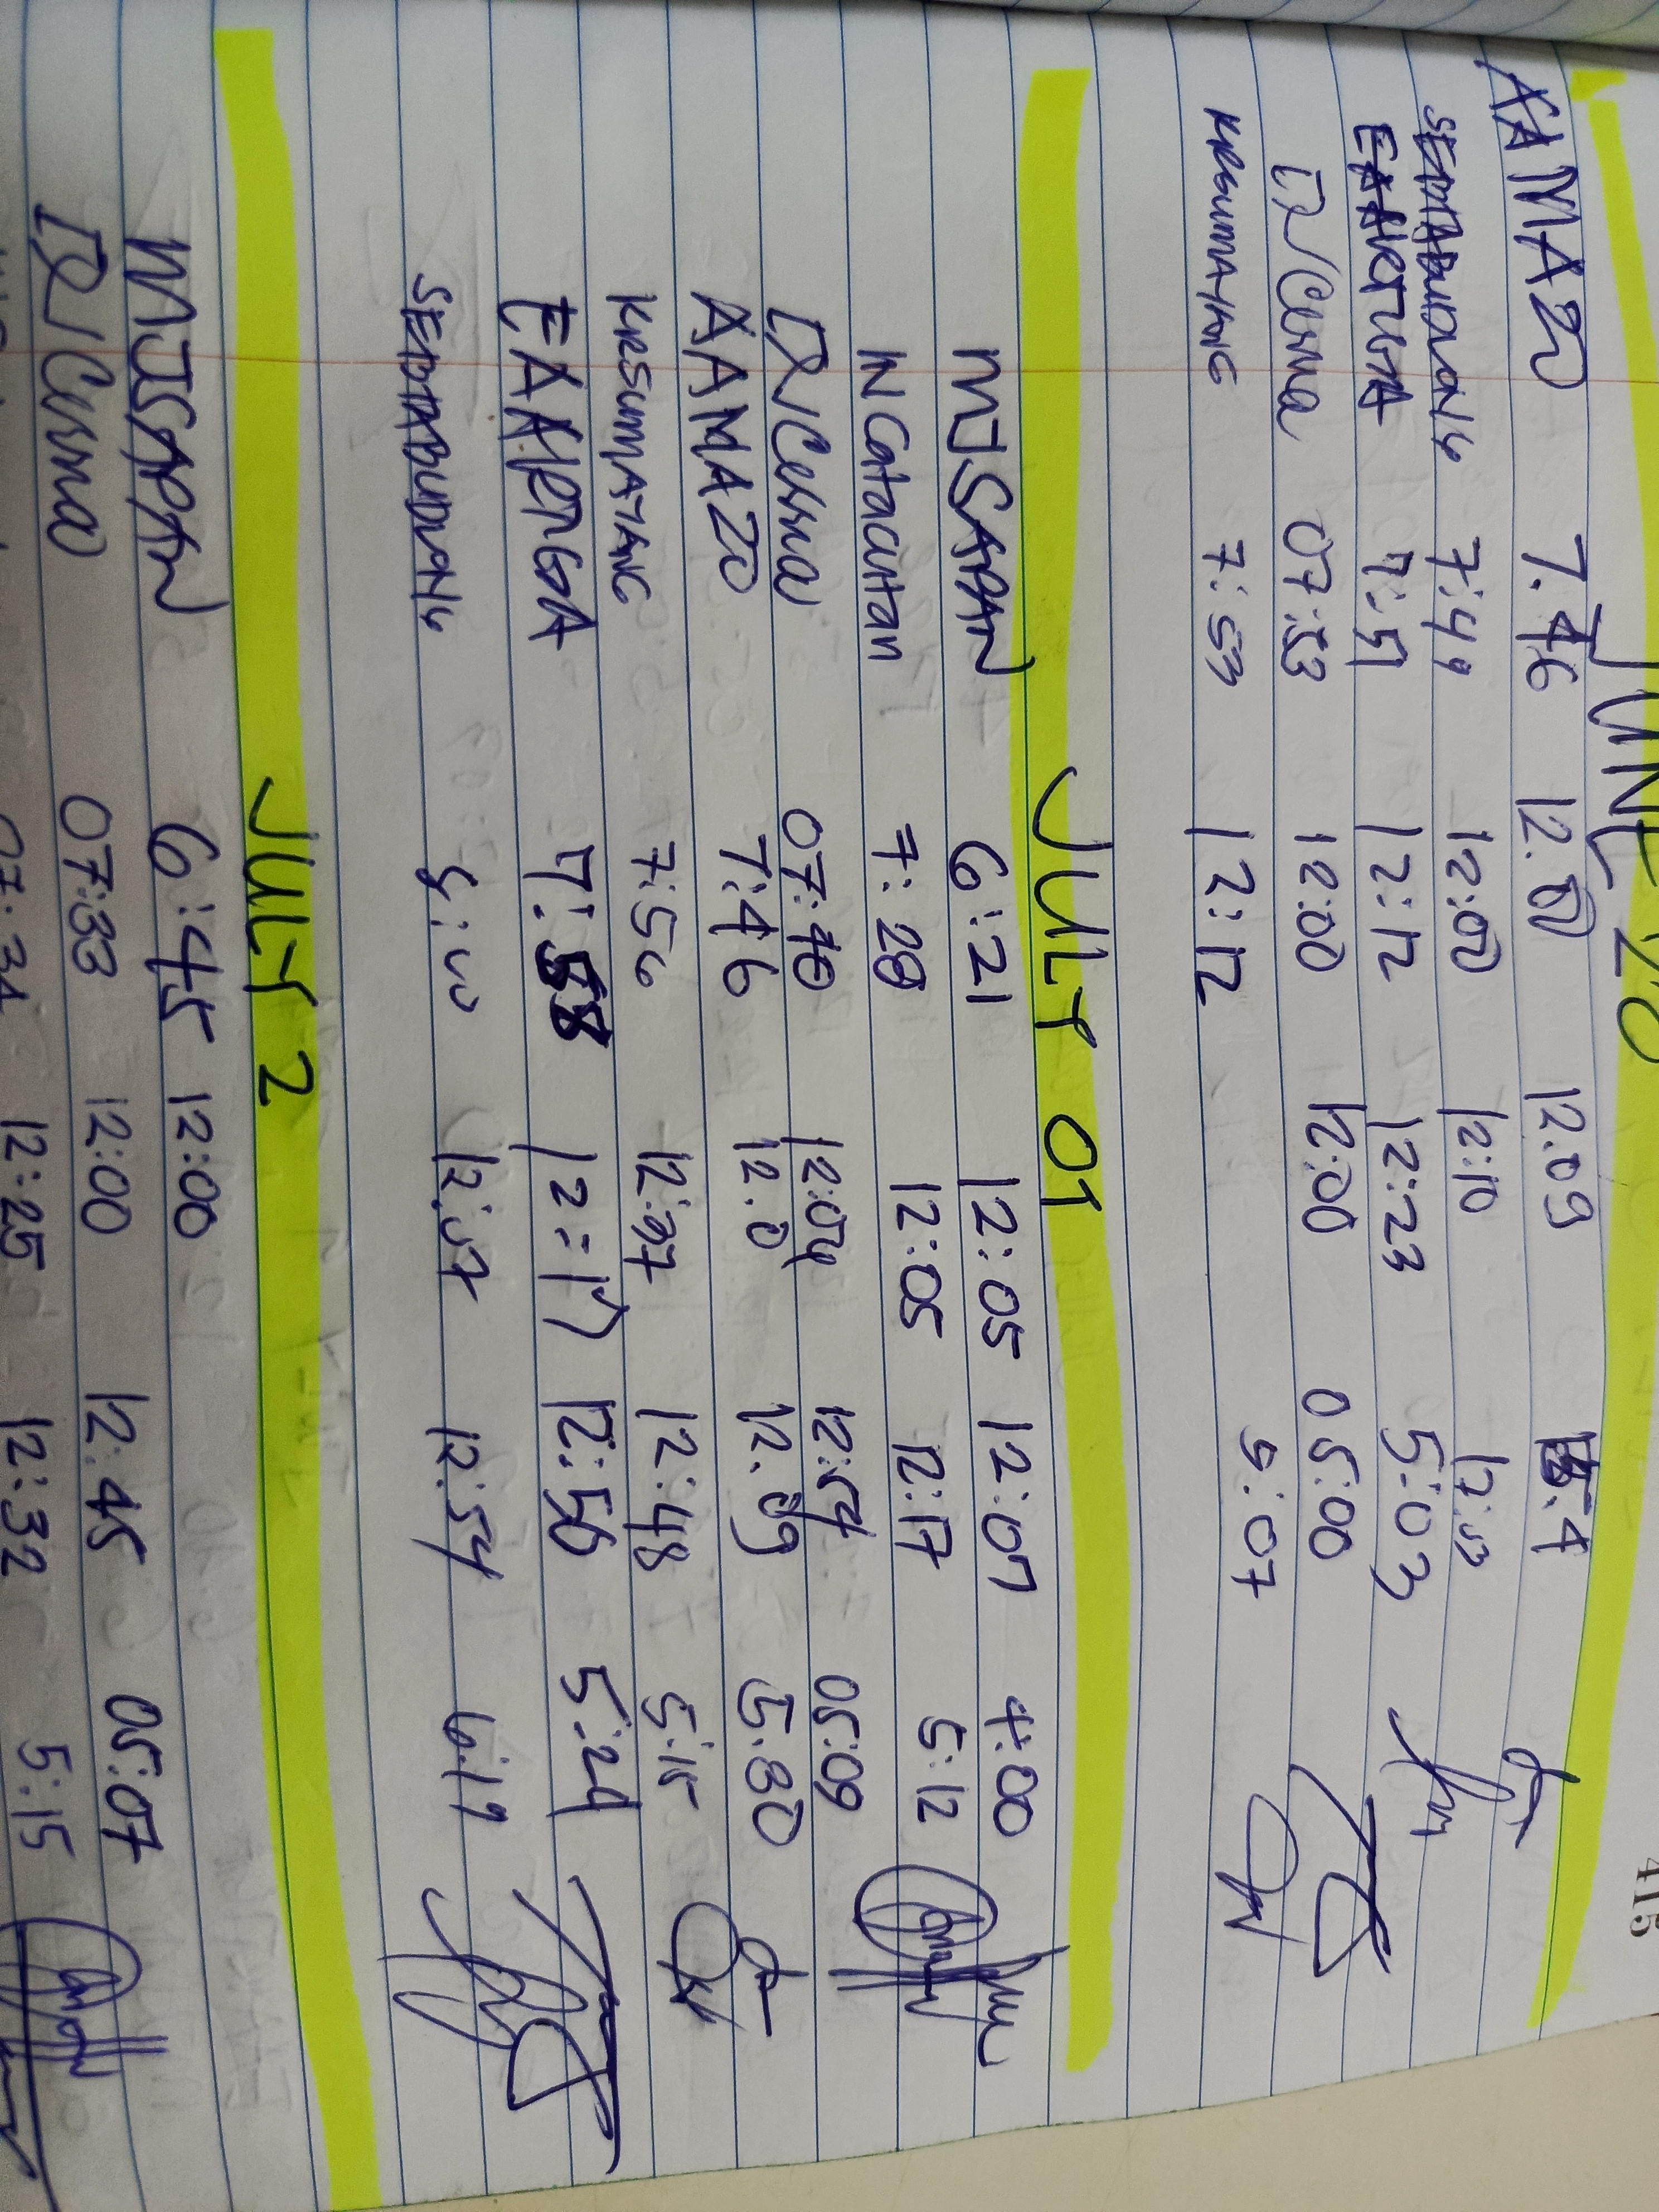 415
JUNE 20
AAMAZO 7.46 12.00 12.09 5:4
SEDTABUDLONG 7:49 12:00 12:10
EAARTGA 7:51 12:12 12:23 5:03
DJCerna 07:53 12:00 12:00 05:00
KRSUMAYANG 7:53 12:12 5:07
JULY 01
MJSAPAN 6:21 12:05 12:07 4:00
N Catacutan 7:28 12:05 12:17 5:12
DJCerna 07:40 12:04 12:54 05:09
AAMAZO 7:46 12.0 12.09 5.30
KRSUMAYANG 7:56 12:37 12:48 5:15
EAARTGA 7:58 12:17 12:50 5:24
SEDTABUDLONG 12:54 6:19
JULY 2
MJSAPAN 6:45 12:00
DJCerna 07:33 12:00 12:45 05:07
07:34 12:25 12:32 5:15